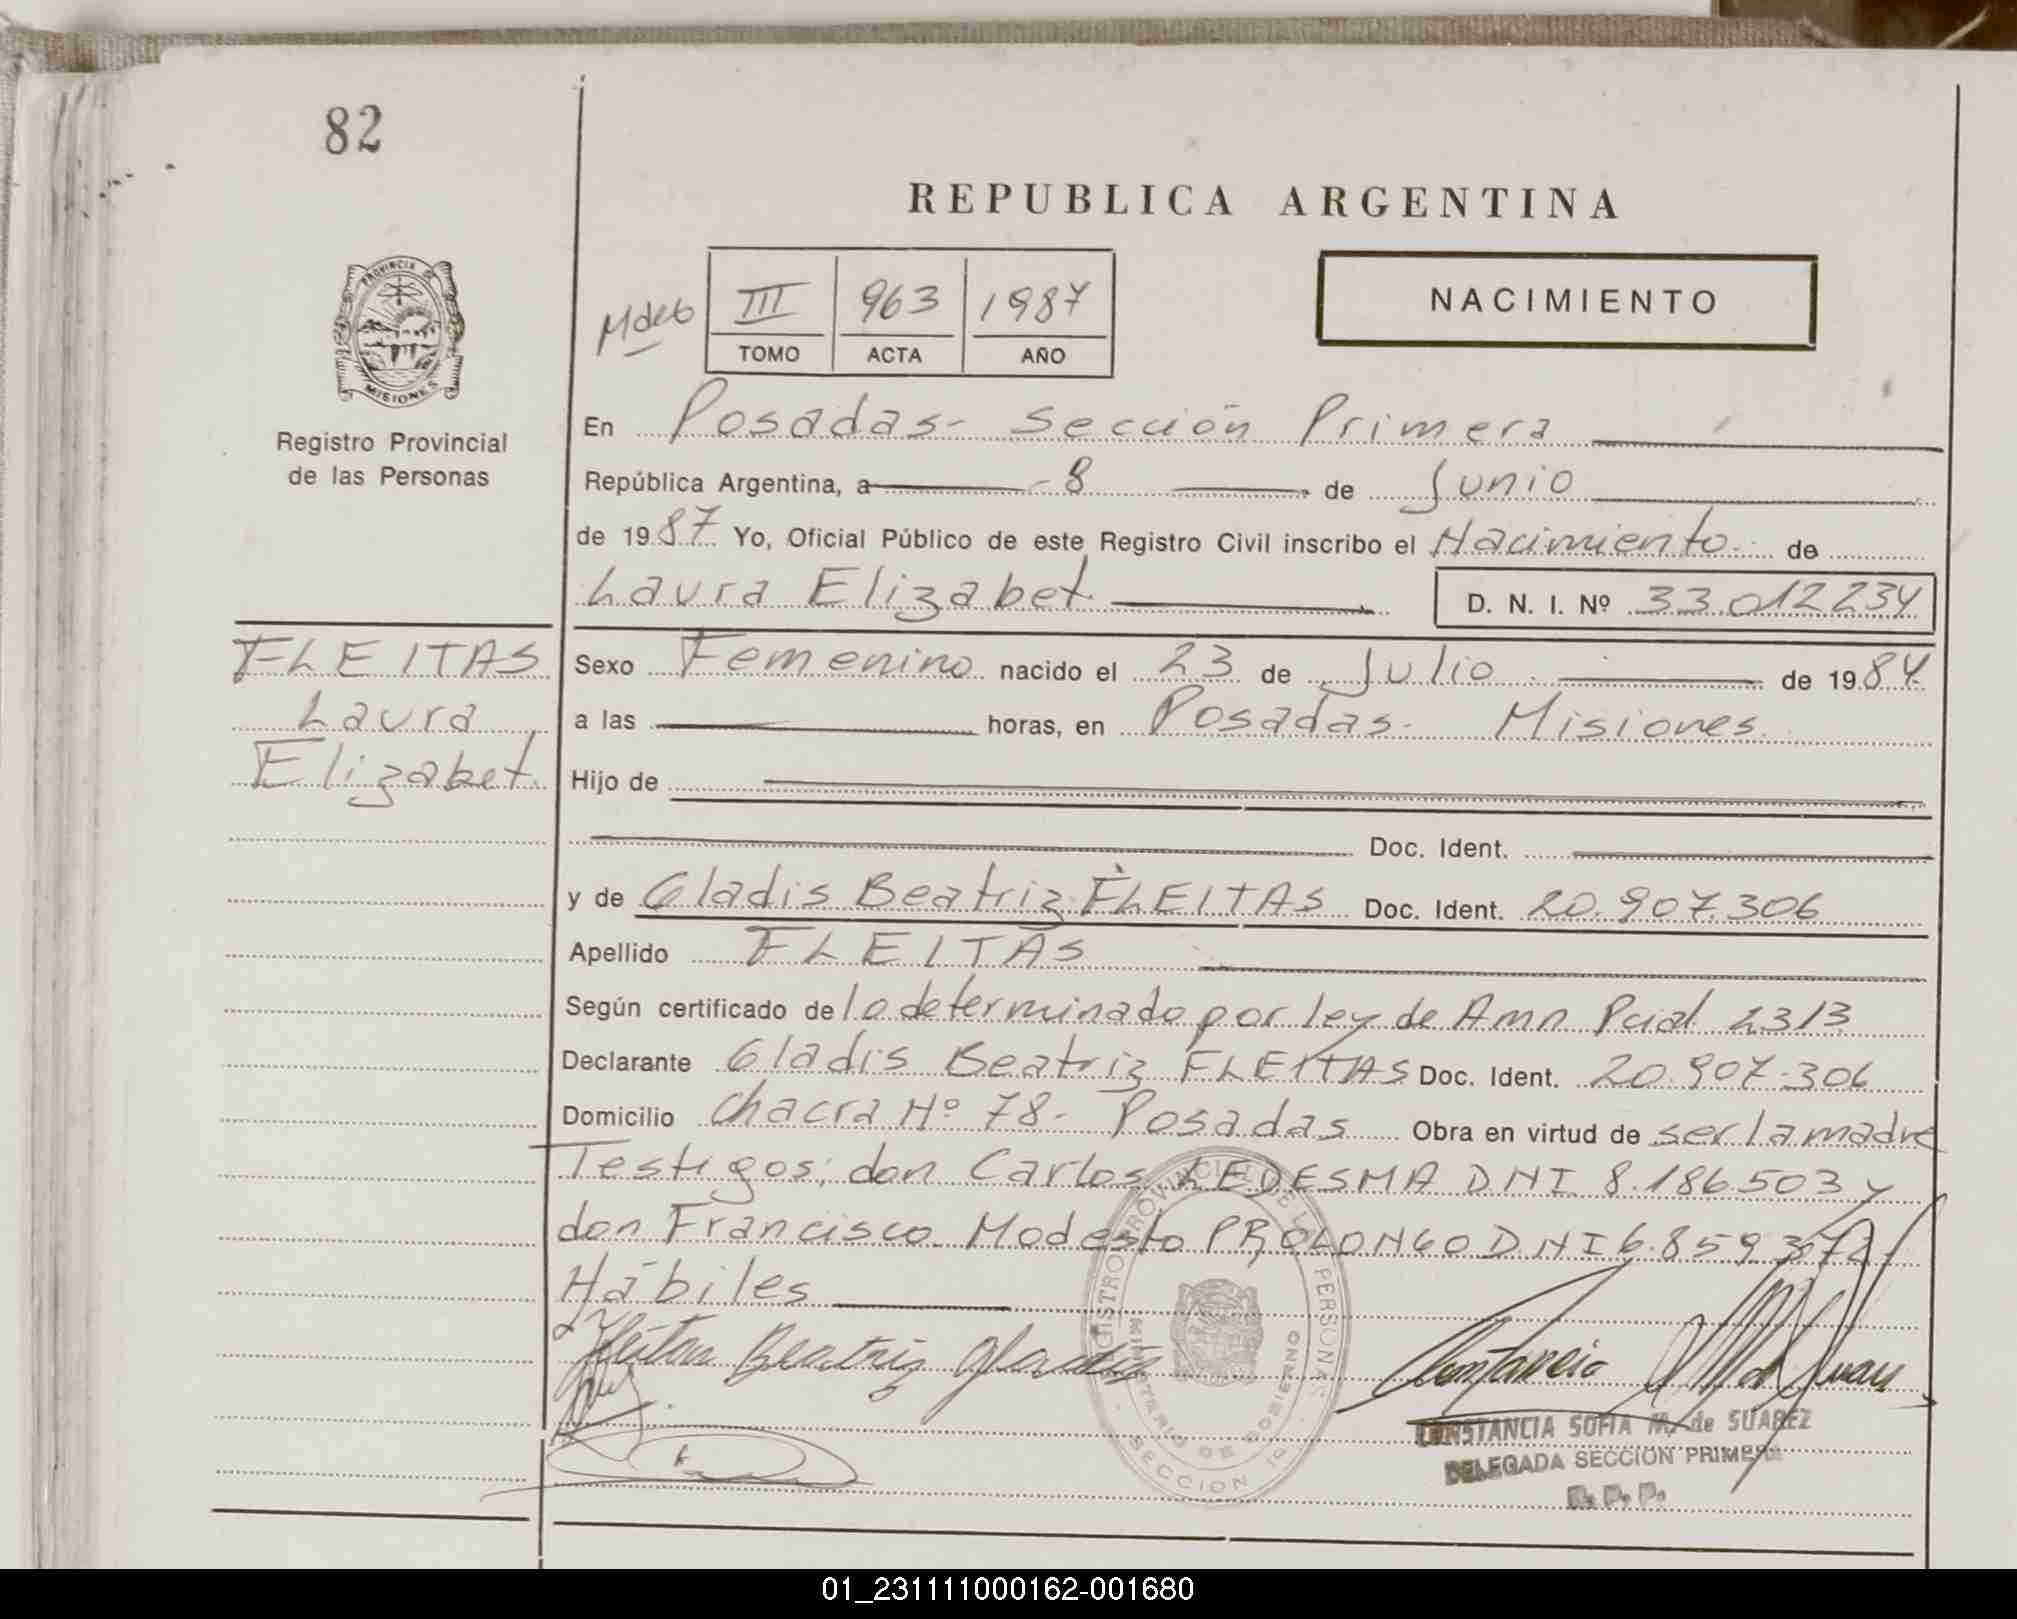 82
REPUBLICA ARGENTINA
PROVINCIA DE
MISIONES
Registro Provincial
de las Personas
III 963 1987
TOMO ACTA AÑO
NACIMIENTO
En Posadas - Sección Primera
República Argentina, a 8 de Junio
de 1987 Yo, Oficial Público de este Registro Civil inscribo el Nacimiento de
Laura Elizabet D. N. I. Nº 33.012234
FLEITAS
Laura
Elizabet
Sexo Femenino nacido el 23 de Julio de 1984
a las horas, en Posadas - Misiones
Hijo de
Doc. Ident.
y de Gladis Beatriz FLEITAS Doc. Ident. 20.907.306
Apellido FLEITAS
Según certificado de lo determinado por ley de Amn Pcial 2313
Declarante Gladis Beatriz FLEITAS Doc. Ident. 20.907.306
Domicilio Chacra Nº 78 - Posadas Obra en virtud de ser la madre
Testigos; don Carlos LEDESMA DNI 8.186.503 y
don Francisco Modesto PROLONGO DNI 6.859.372.
Hábiles
Fleitas Beatriz Gladis
REGISTRO PROVINCIAL DE LAS PERSONAS
MINISTERIO DE GOBIERNO
SECCION 1a
CONSTANCIA SOFIA M. de SUAREZ
DELEGADA SECCION PRIMERA
R. P. P.
01_231111000162-001680